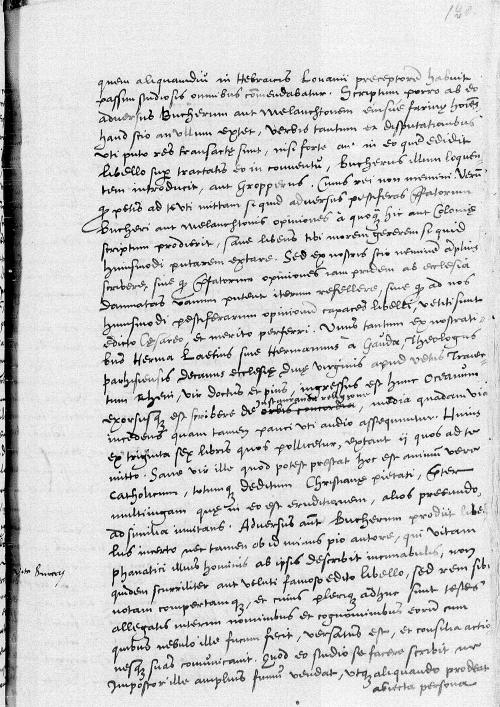 quem aliquamdiu in Hebraicis Lovanii preceptorē habuit
passim studiosis omnibus cōmendabatur. Scriptum porro ab eo
adversus Bucherum aut Melanchtonem eiusve farinę hoīes
haud scio an ullum extet, verbis tantum et disputationibus
uti puto res transactę sunt, nisi forte in eo quem edidit
libello sup tractatis eo in conventu, Bucherus illum loquen
tem introducit, aut Gropperus. Cuius rei non memini. Verū
petis ad te uti mittam si quid adversus pestiferas pfatorum
Bucheri aut Melanchtonis opiniones a quoq hic aut Colonię
scriptum prodierit, sane libens tibi morem gererem si quid
huiusmodi putarem extare. Sed ex nostris scio neminē
scribere, sive q pfatorum opiniones iam pridem ab ecclesia
damnatas vanum putent iterum refellere, sive q ad nos
huiusmodi pestiferarum opinionū capaces libelli, vetiti sunt
edicto Cesareo, et merito perferri. Unus tantum ex nostrati
bus Herma Laetus sive Hermannus a Gauda, Theologus
parisiensis decanus ecclesię divę virginis apud vetus Traiec
tum Rheni, vir doctus et pius, ingressus est hunc Oceanum
exorsusq est scribere de orbis concordia, media quadam via
incedens quam tamen pauci uti audio assequuntur. Huius
ex triginta sex libris quos pollicetur, extant ii quos ad te
mitto. Sane vir ille quod potest prestat hoc est animū vere
catholicum, totumq deditum Christianę pietati, pter
multiiugam quę in eo est eruditionem, alios presundo,
ad similia invitans. Adversus aut Bucherum prodiit libel
lus incerto nec tamen ob id minus pio autore, qui vitam
phanatici illius hominis ab ipsis describit incunabulis, non
quidem scurriliter aut veluti famoso edito libello, sed rem sibi
notam compertamq, et cuius pleriq adhuc sunt testes
allegatis interim nominibus et cognominibus eorum cum
quibus nebulo ille fucum fecit, versatus est, et consilia actio
nesq suas comunicavit. Quod eo studio se facere scribit, ne
impostor ille amplius fumū vendat, utq aliquando prodeat
abiecta persona